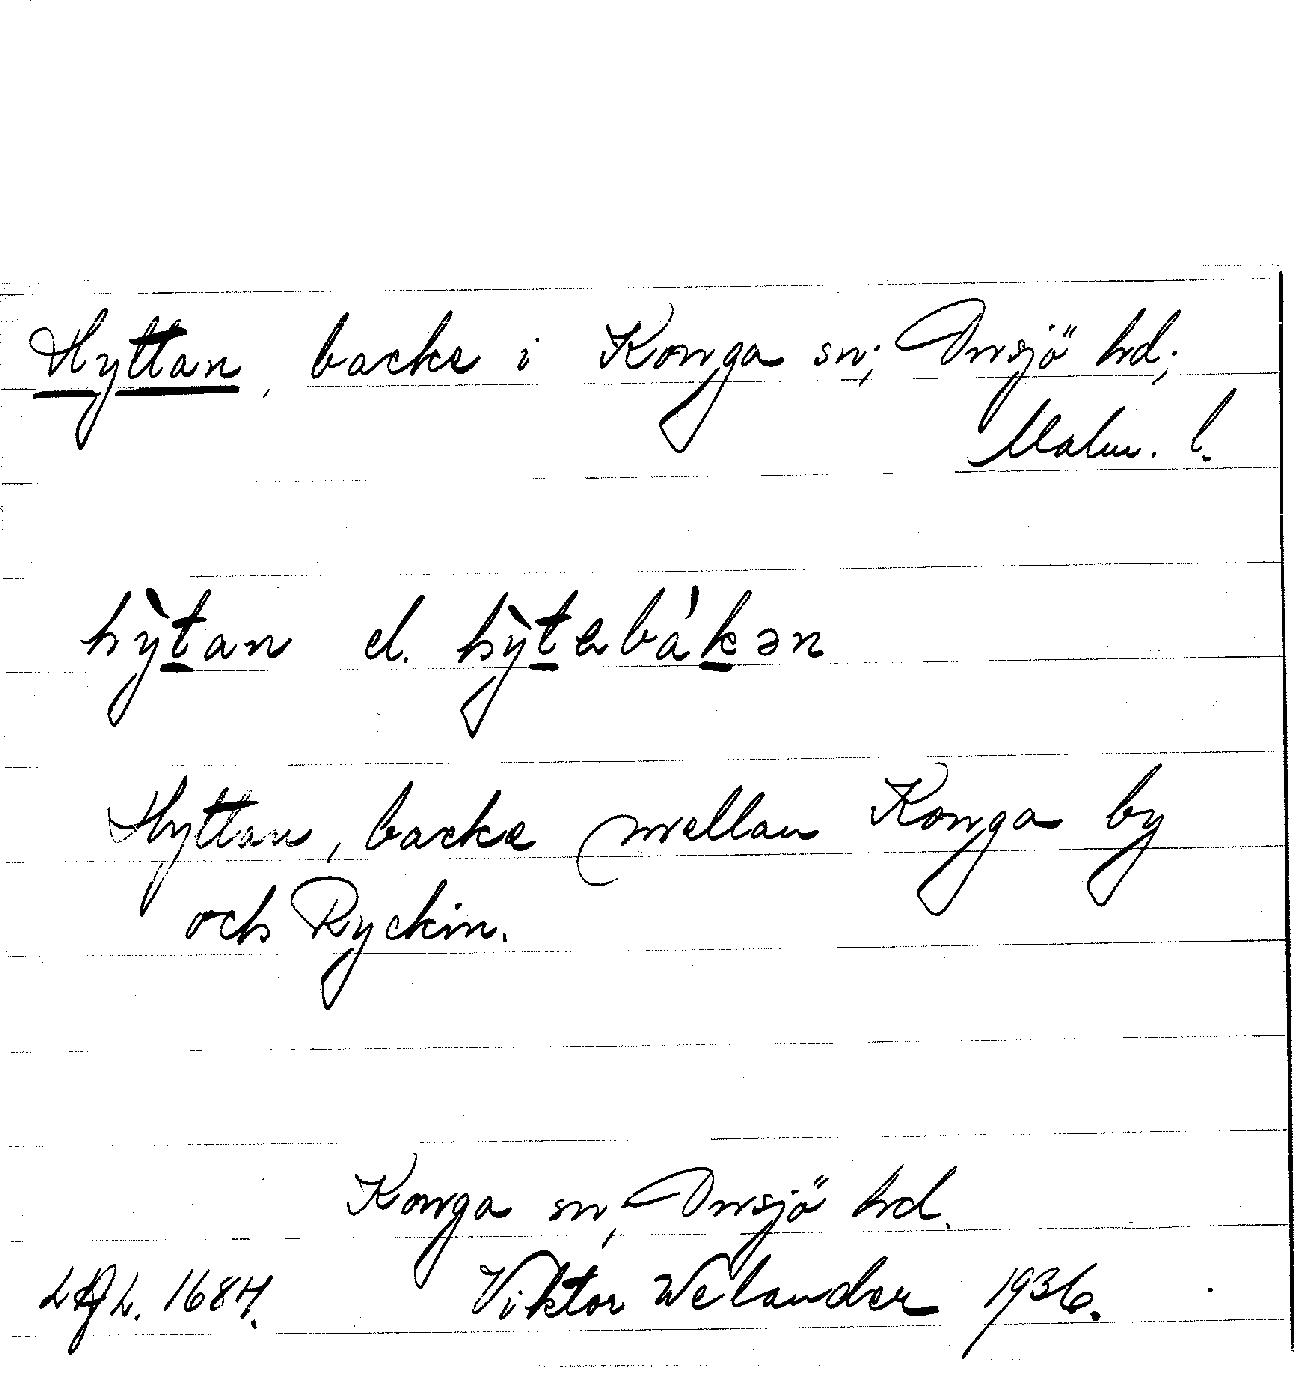 Hyttan, backe i Konga sn, Onsjö hd,
Malm. l.
hỳtan el. hỳtebákən
Hyttan, backe mellan Konga by
och Ryckin.
Konga sn, Onsjö hd.
1684. Viktor Welander 1936.